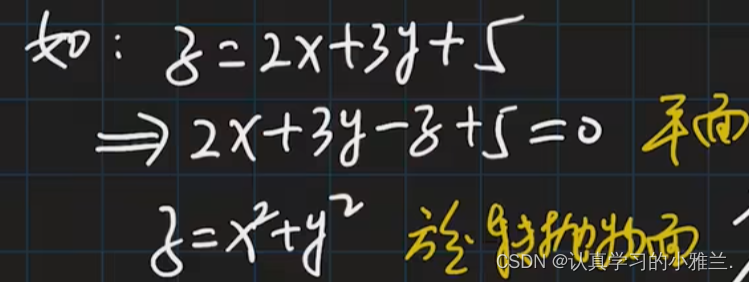 如：z=2x+3y+5
⟹ 2x+3y-z+5=0 平面
z=x²+y² 旋转抛物面
CSDN @认真学习的小雅兰.